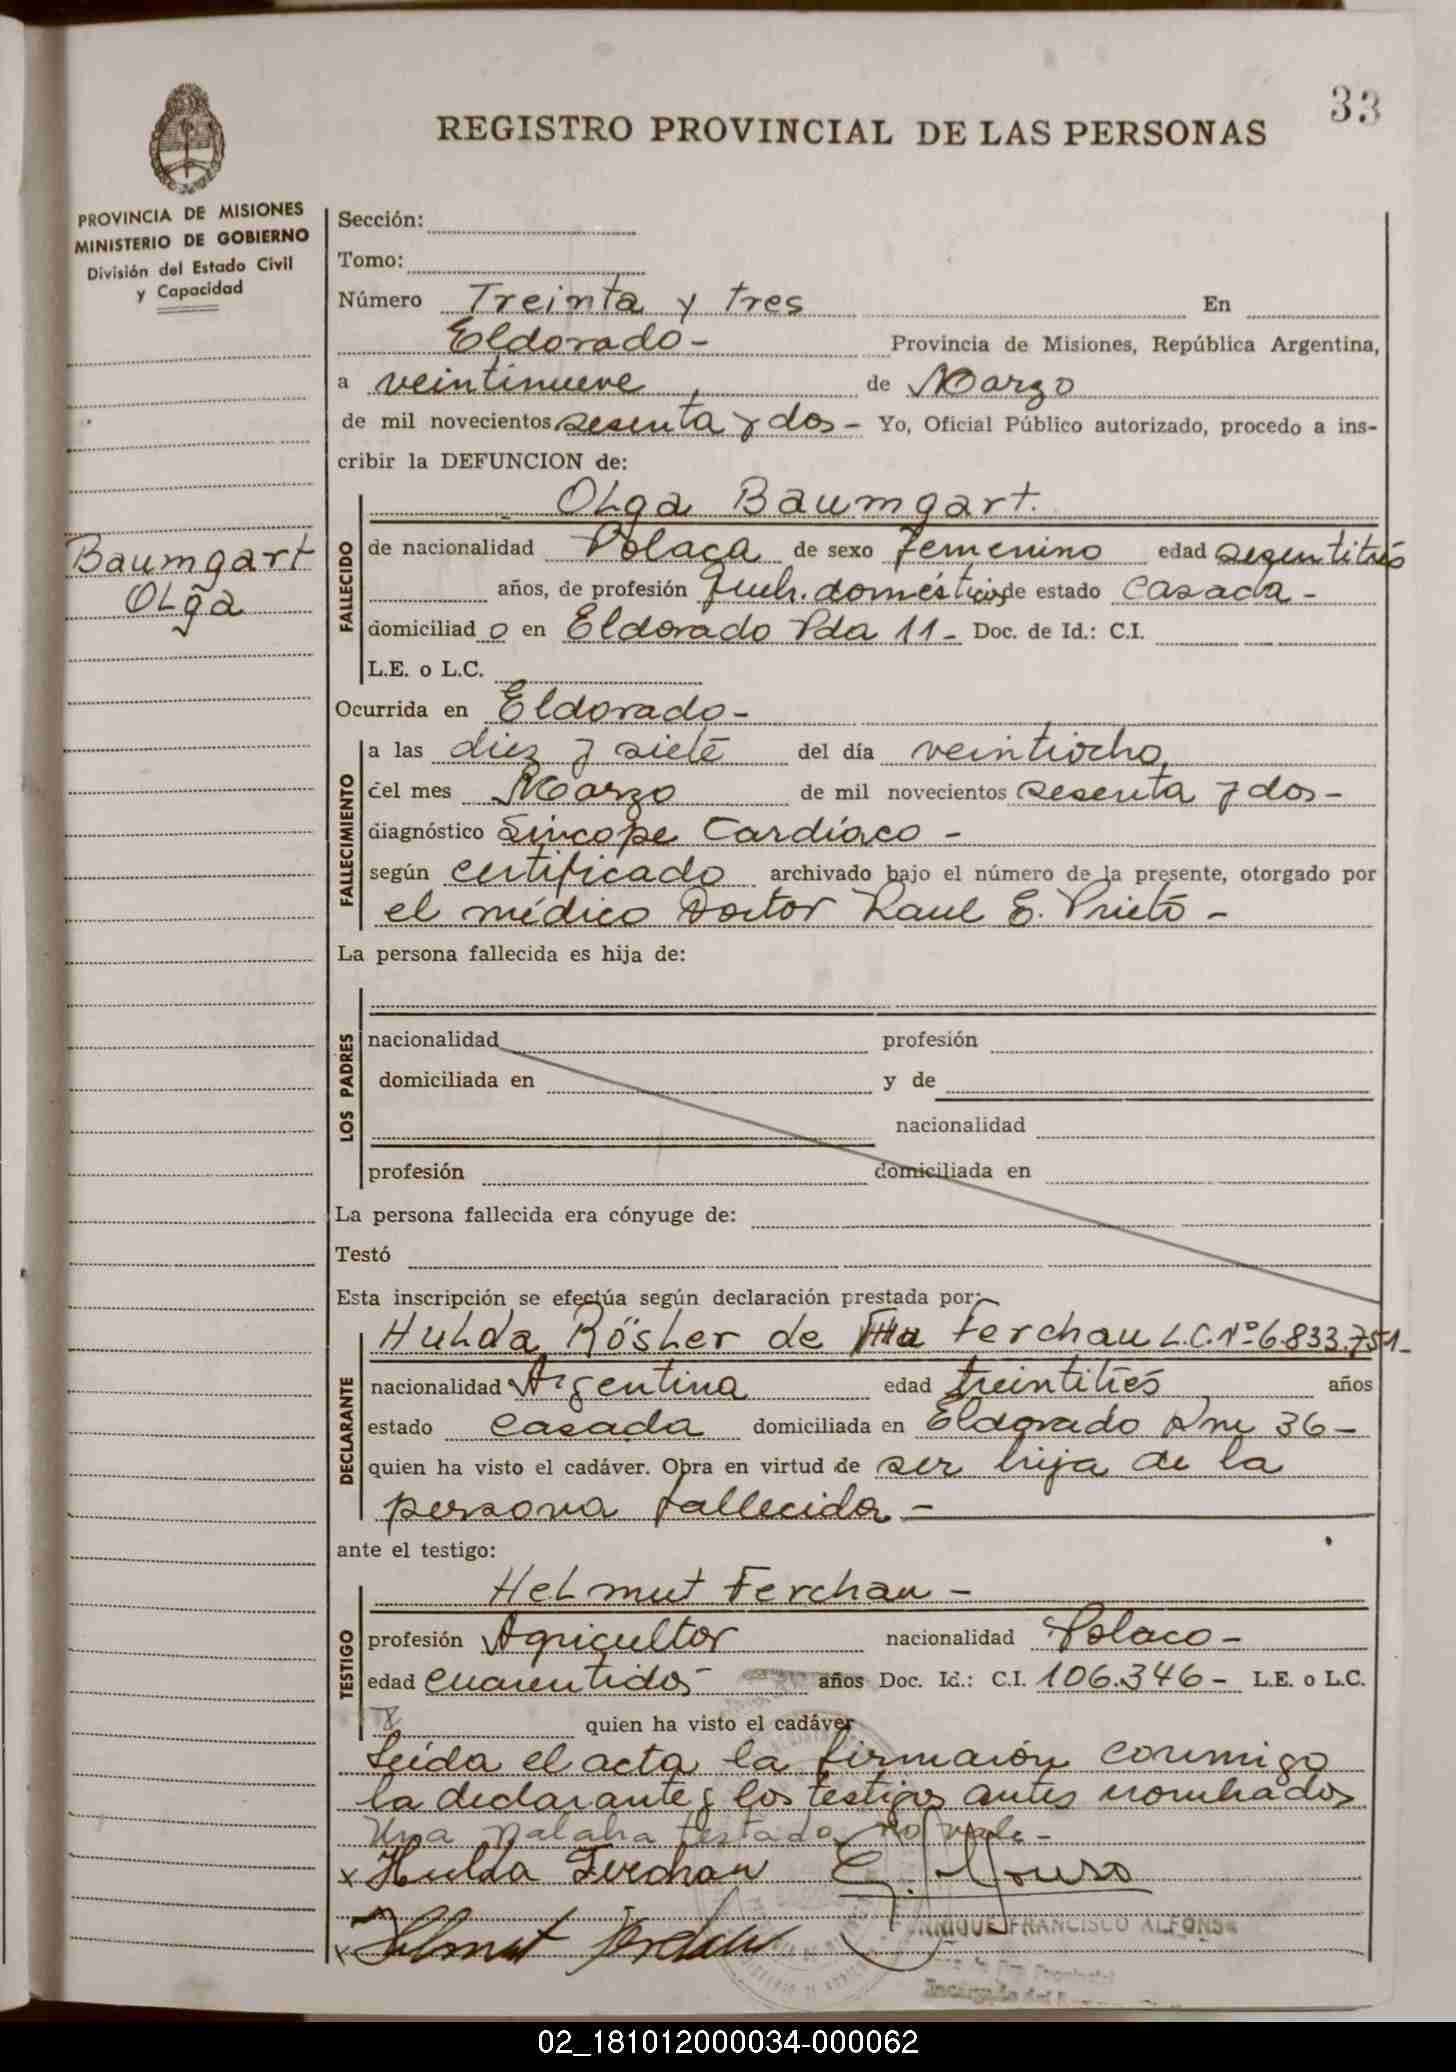 33
REGISTRO PROVINCIAL DE LAS PERSONAS
PROVINCIA DE MISIONES
MINISTERIO DE GOBIERNO
División del Estado Civil
y Capacidad
Baumgart
Olga
Sección:
Tomo:
Número Treinta y tres En
Eldorado - Provincia de Misiones, República Argentina,
a veintinueve de Marzo
de mil novecientos sesenta y dos - Yo, Oficial Público autorizado, procedo a ins-
cribir la DEFUNCION de:
FALLECIDO
Olga Baumgart.
de nacionalidad Polaca de sexo Femenino edad sesentitrés
años, de profesión Queh. domésticos de estado casada -
domiciliado en Eldorado Pda 11 - Doc. de Id.: C.I.
L.E. o L.C.
Ocurrida en Eldorado -
FALLECIMIENTO
a las diez y siete del día veintiocho
del mes Marzo de mil novecientos sesenta y dos -
diagnóstico Síncope Cardíaco -
según certificado archivado bajo el número de la presente, otorgado por
el médico Doctor Raul E. Prieto -
La persona fallecida es hija de:
LOS PADRES
nacionalidad profesión
domiciliada en y de
nacionalidad
profesión domiciliada en
La persona fallecida era cónyuge de:
Testó
Esta inscripción se efectúa según declaración prestada por:
DECLARANTE
Hulda Rösler de Ferchau L.C. Nº 6.833.751-
nacionalidad Argentina edad treintitrés años
estado casada domiciliada en Eldorado Km 36 -
quien ha visto el cadáver. Obra en virtud de ser hija de la
persona fallecida -
ante el testigo:
TESTIGO
Helmut Ferchau -
profesión Agricultor nacionalidad Polaco -
edad cuarentidos - años Doc. Id.: C.I. 106.346 - L.E. o L.C.
quien ha visto el cadáver
Leída el acta la firmaron conmigo
la declarante y los testigos antes nombrados
Una palabra testada no vale -
x Hulda Ferchau E. Alfonso
x Helmut Ferchau
ENRIQUE FRANCISCO ALFONSO
02_181012000034-000062